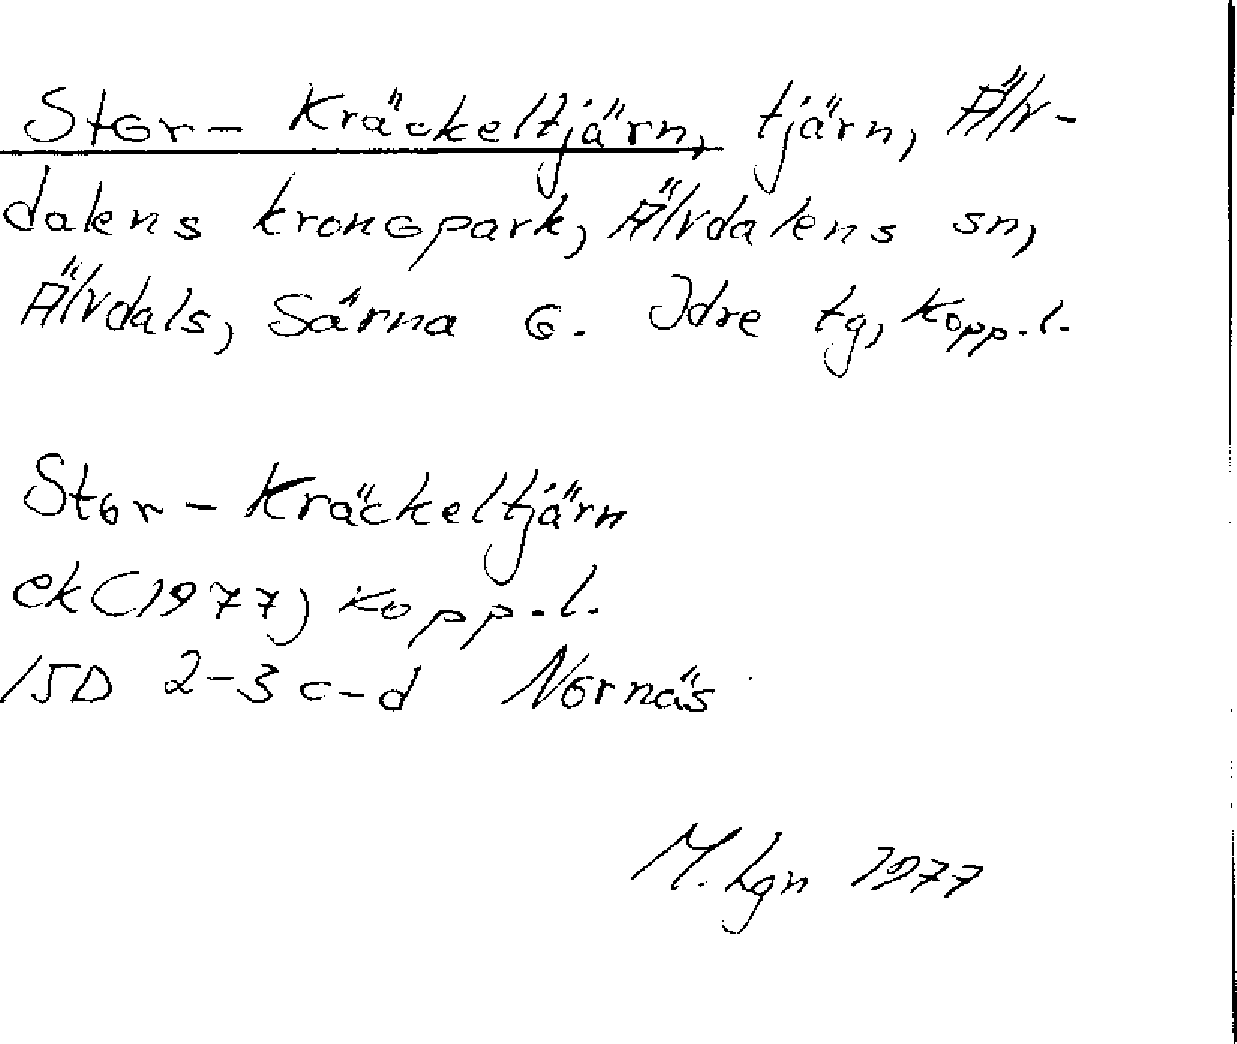 Stor-Kräckeltjärn, tjärn, Älv-
dalens kronopark, Älvdalens sn,
Älvdals, Särna o. Idre tg, Kopp.l.
Stor-Kräckeltjärn
ek(1977) Kopp.l.
15D 2-3 c-d Nornäs
M. Lgn 1977